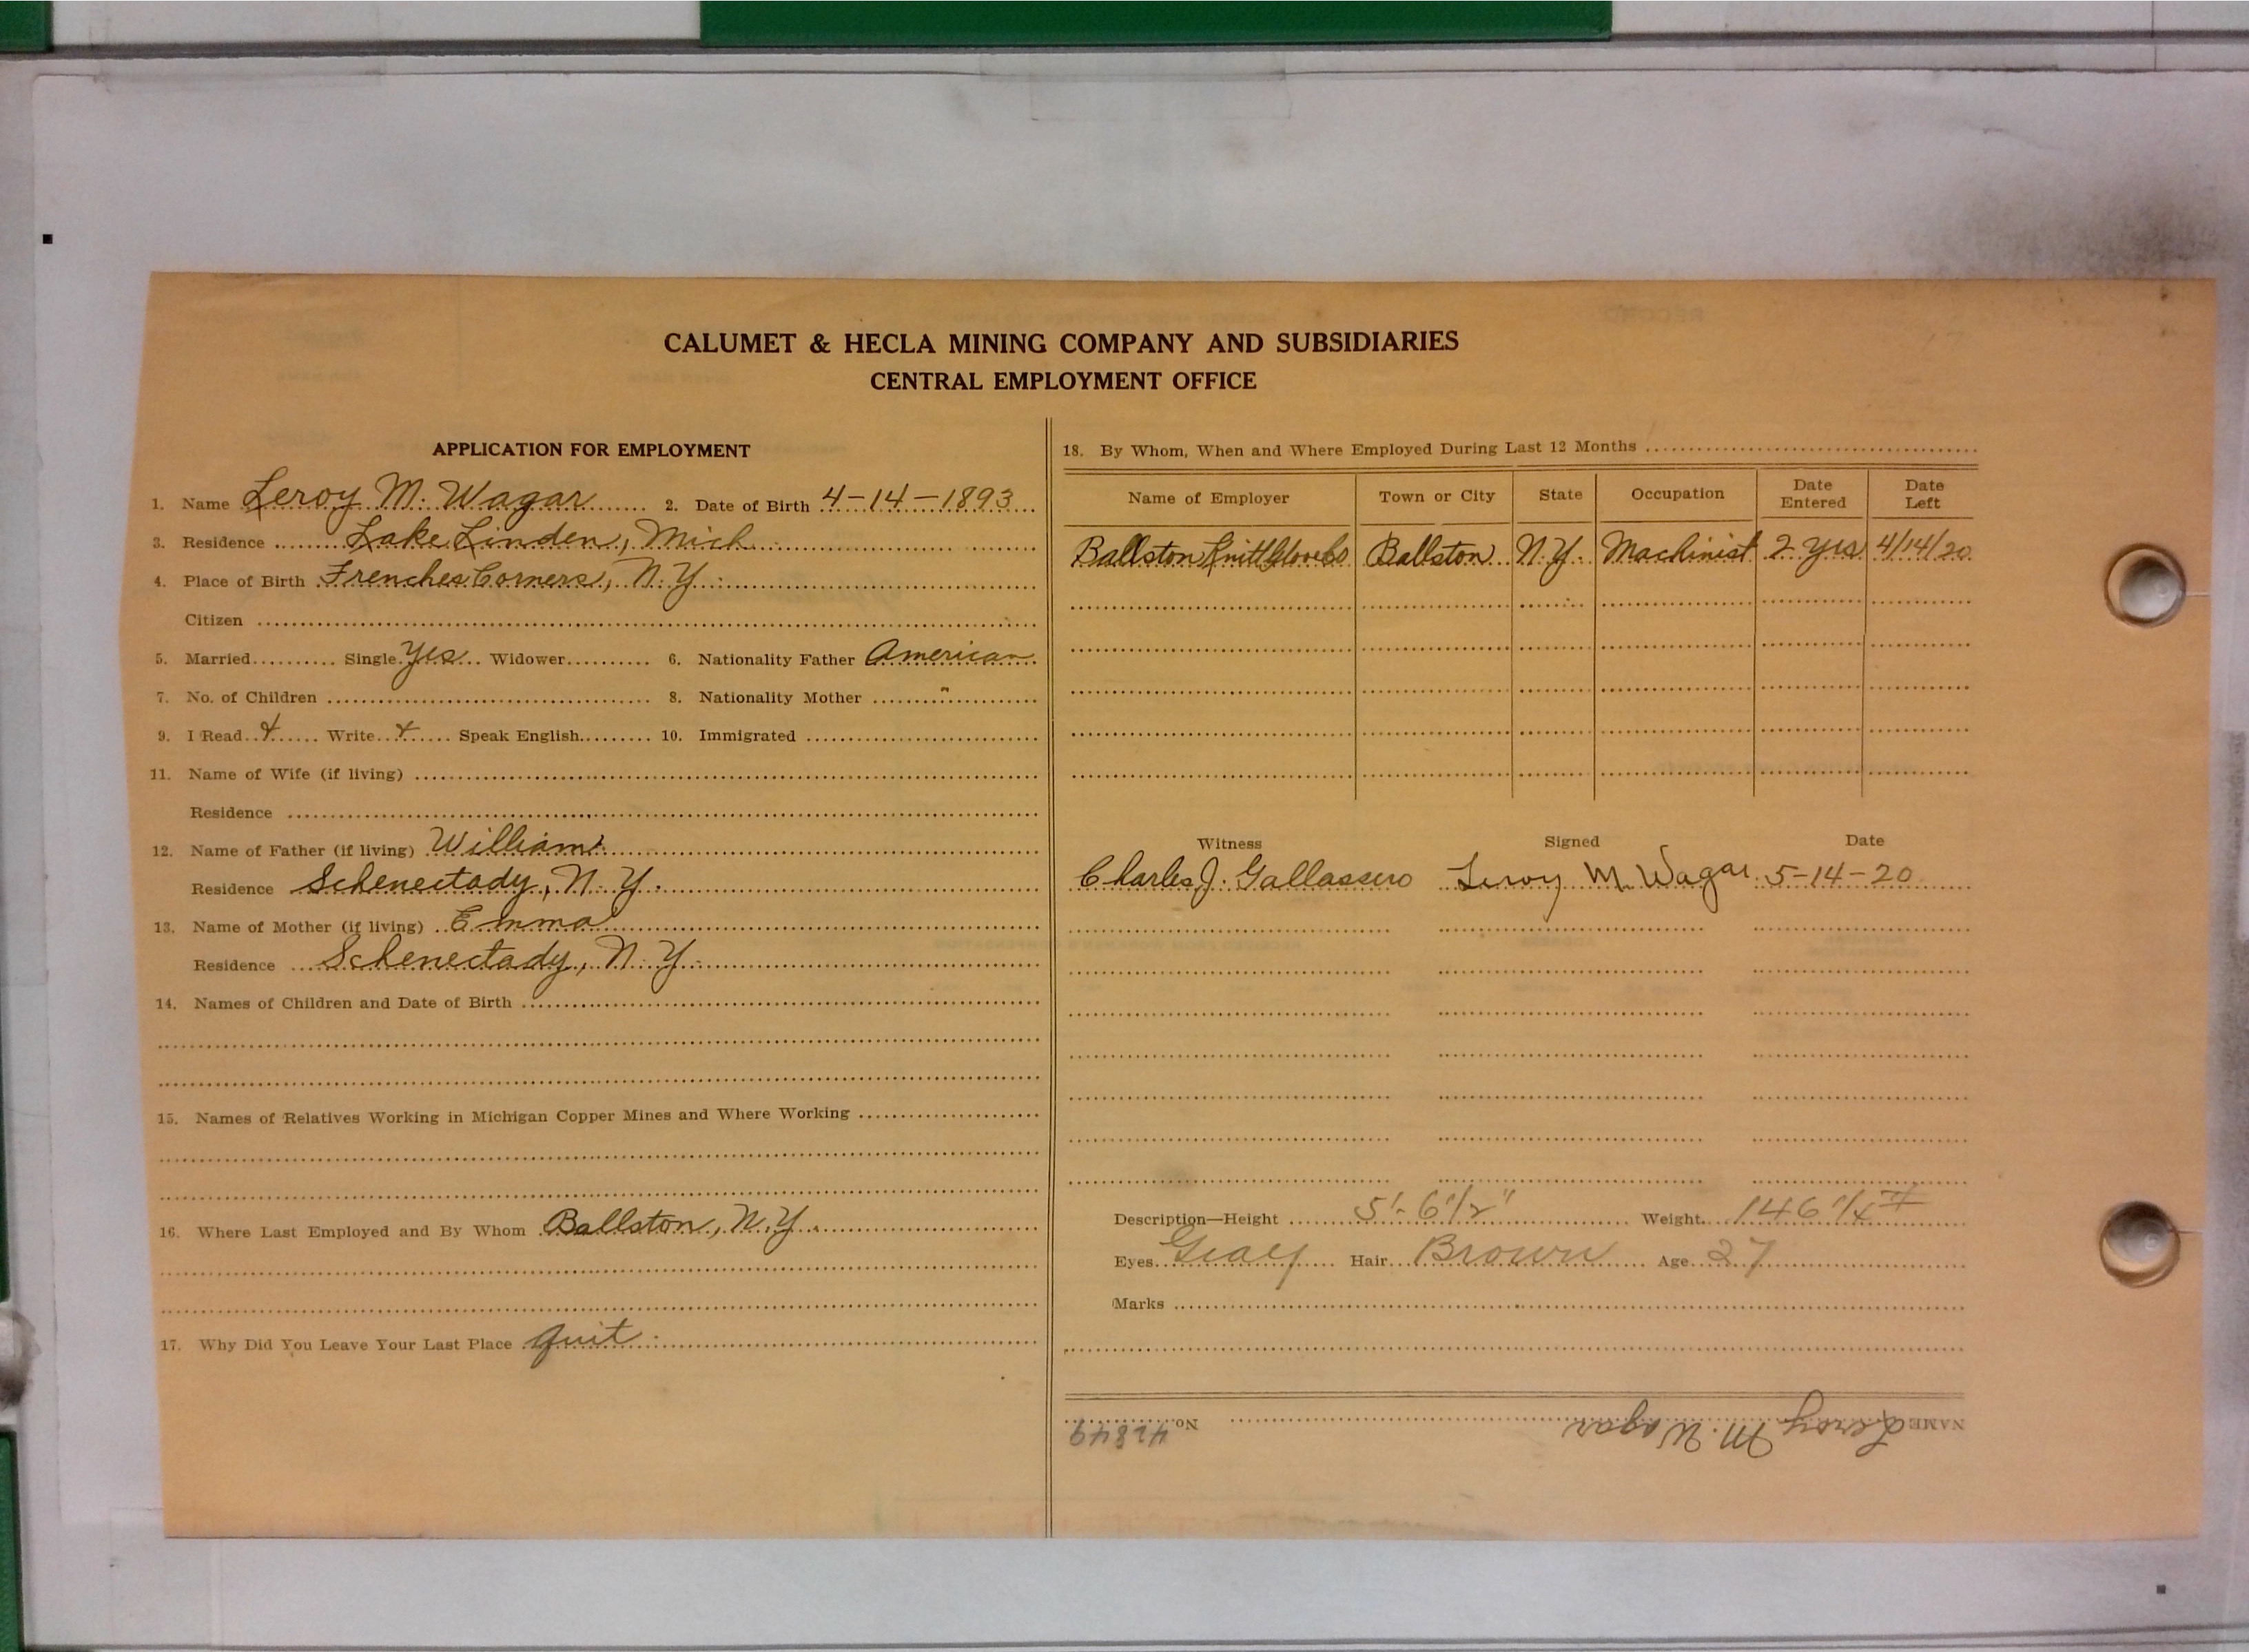 CALUMET & HECLA MINING COMPANY AND SUBSIDIARIES
CENTRAL EMPLOYMENT OFFICE
APPLICATION FOR EMPLOYMENT
1. Name Leroy M. Wagar 2. Date of Birth 4-14-1893
3. Residence Lake Linden, Mich.
4. Place of Birth Frenches Corners, N.Y.
Citizen
5. Married Single Yes Widower 6. Nationality Father American
7. No. of Children 8. Nationality Mother "
9. I Read x Write x Speak English 10. Immigrated
11. Name of Wife (if living)
Residence
12. Name of Father (if living) William
Residence Schenectady, N.Y.
13. Name of Mother (if living) Emma
Residence Schenectady, N.Y.
14. Names of Children and Date of Birth
15. Names of Relatives Working in Michigan Copper Mines and Where Working
16. Where Last Employed and By Whom Ballston, N.Y.
17. Why Did You Leave Your Last Place quit.
18. By Whom, When and Where Employed During Last 12 Months
Name of Employer Town or City State Occupation Date Entered Date Left
Ballston Knitt Glove Co Ballston N.Y. Machinist 2 yrs 4/14/20
Witness Signed Date
Charles J. Gallassero Leroy M. Wagar 5-14-20
Description—Height 5'-6 1/2" Weight 146
Eyes Gray Hair Brown Age 27
Marks
NAME Leroy M. Wagar No. 42849